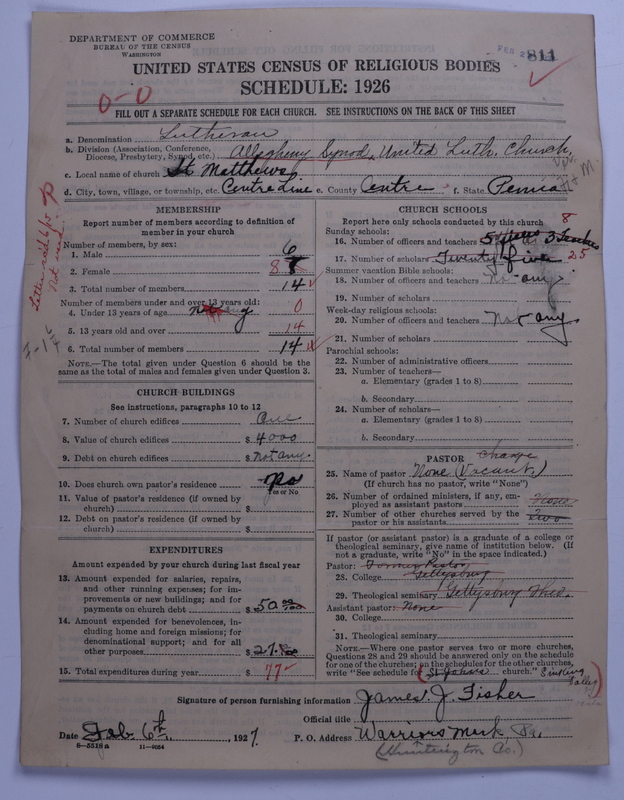 DEPARTMENT OF COMMERCE
BUREAU OF THE CENSUS
WASHINGTON
FEB 811
UNITED STATES CENSUS OF RELIGIOUS BODIES
SCHEDULE: 1926
0-0
FILL OUT A SEPARATE SCHEDULE FOR EACH CHURCH. SEE INSTRUCTIONS ON THE BACK OF THIS SHEET
a. Denomination Lutheran
b. Division (Association, Conference, Diocese, Presbytery, Synod, etc.) Allegheny Synod, United Luth. Church,
c. Local name of church St Matthews
d. City, town, village, or township, etc. Centre Line e. County Centre f. State Penna
MEMBERSHIP
Report number of members according to definition of
member in your church
Number of members, by sex:
1. Male 6
2. Female 8
3. Total number of members 14
Number of members under and over 13 years old:
4. Under 13 years of age not any 0
5. 13 years old and over 14
6. Total number of members 14
NOTE.—The total given under Question 6 should be
same as the total of males and females given under Question 3.
CHURCH BUILDINGS
See instructions, paragraphs 10 to 12
7. Number of church edifices One
8. Value of church edifices $ 4000
9. Debt on church edifices $ not any
10. Does church own pastor's residence no
Yes or No
11. Value of pastor's residence (if owned by
church) $
12. Debt on pastor's residence (if owned by
church) $
EXPENDITURES
Amount expended by your church during last fiscal year
13. Amount expended for salaries, repairs,
and other running expenses; for im-
provements or new buildings; and for
payments on church debt $ 50 00/100
14. Amount expended for benevolences, in-
cluding home and foreign missions; for
denominational support; and for all
other purposes $ 27.
15. Total expenditures during year $ 77
CHURCH SCHOOLS
Report here only schools conducted by this church
Sunday schools:
16. Number of officers and teachers 3 Teachers 8
17. Number of scholars Twenty five 25
Summer vacation Bible schools:
18. Number of officers and teachers not any
19. Number of scholars
Week-day religious schools:
20. Number of officers and teachers Not any
21. Number of scholars
Parochial schools:
22. Number of administrative officers
23. Number of teachers—
a. Elementary (grades 1 to 8)
b. Secondary
24. Number of scholars—
a. Elementary (grades 1 to 8)
b. Secondary
PASTOR
charge
25. Name of pastor None (Vacant)
(If church has no pastor, write "None")
26. Number of ordained ministers, if any, em-
ployed as assistant pastors None
27. Number of other churches served by the
pastor or his assistants Two
If pastor (or assistant pastor) is a graduate of a college or
theological seminary, give name of institution below. (If
not a graduate, write "No" in the space indicated.)
Pastor: Former Pastor
28. College Gettysburg
29. Theological seminary Gettysburg Theo.
Assistant pastor: None
30. College
31. Theological seminary
NOTE.—Where one pastor serves two or more churches,
Questions 28 and 29 should be answered only on the schedule
for one of the churches; on the schedules for the other churches,
write "See schedule for St Johns church." Sinking Valley
Signature of person furnishing information James. J. Fisher
Official title
Date Feb 6th, 1927. P. O. Address Warriors Mark, Pa,
(Huntington Co.)
6-5518a 11-9054